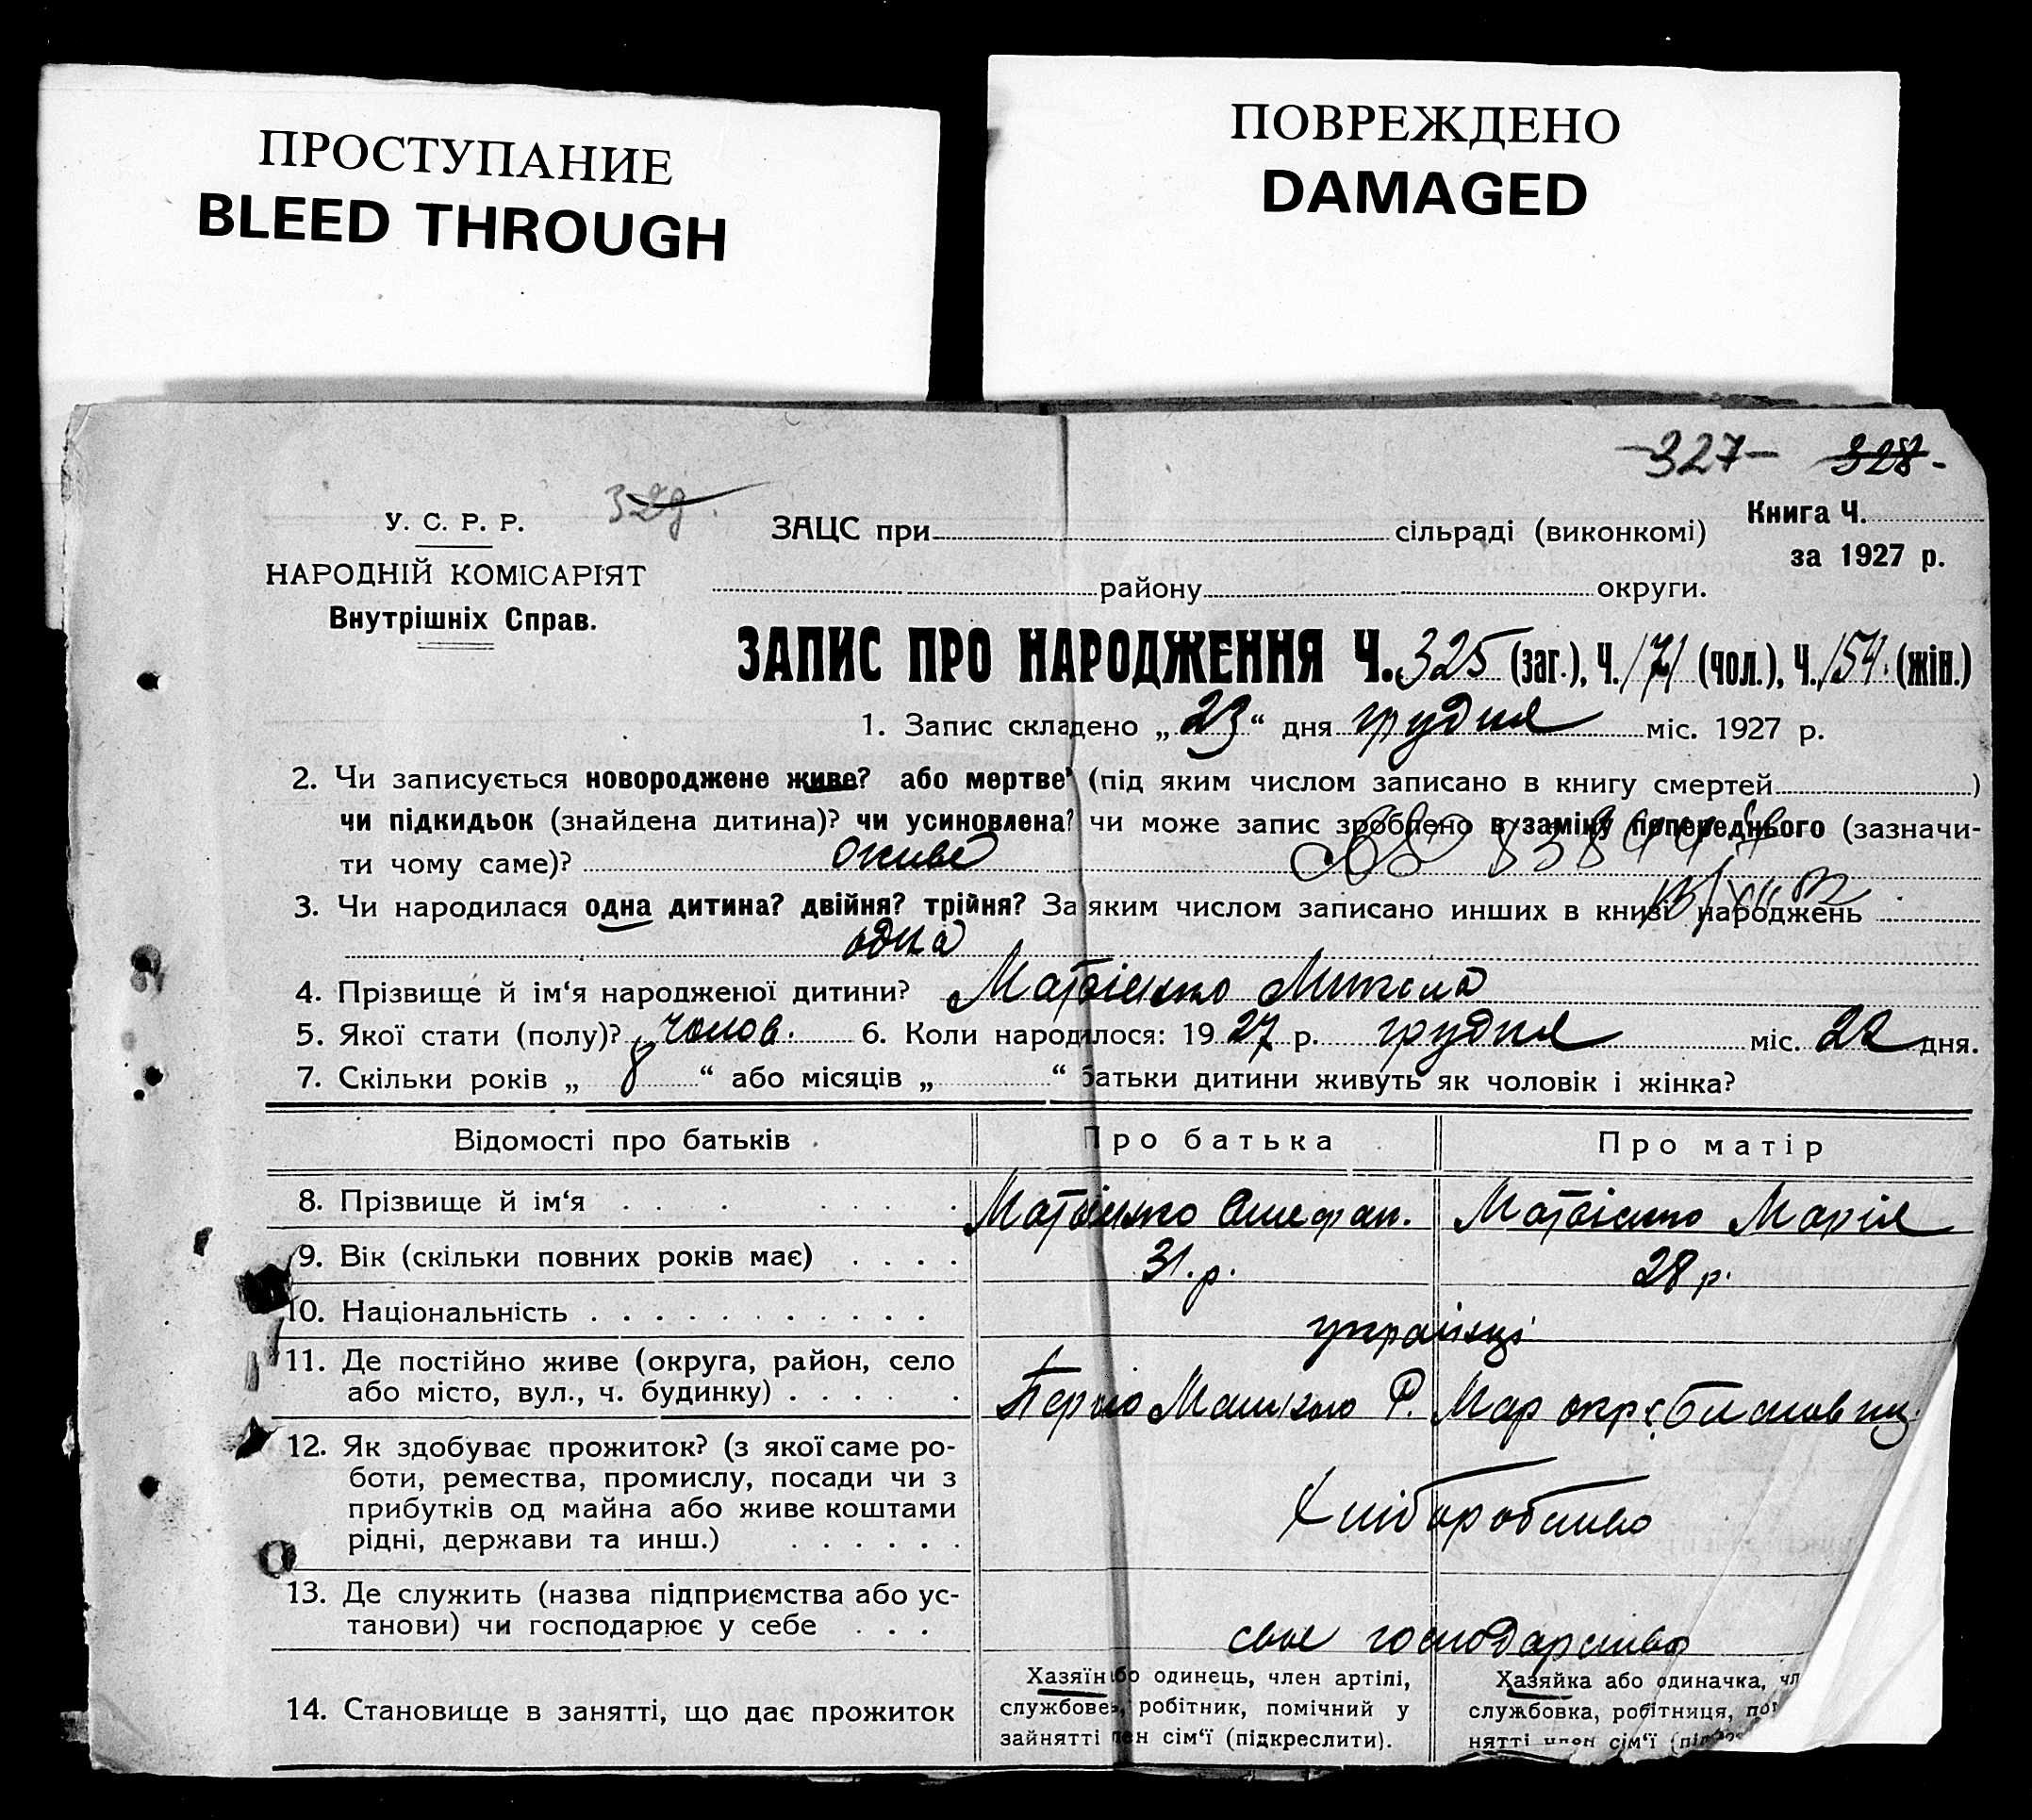 ПРОСТУПАНИЕ
BLEED THROUGH
ПОВРЕЖДЕНО
DAMAGED
-327- 328-
329.
У. С. Р. Р.
НАРОДНІЙ КОМІСАРІЯТ
Внутрішніх Справ.
ЗАЦС при сільраді (виконкомі)
району округи.
Книга Ч.
за 1927 р.
ЗАПИС ПРО НАРОДЖЕННЯ Ч. 325 (заг.), Ч. 171 (чол.), Ч. 154. (жін.)
1. Запис складено „ 23 “ дня грудня міс. 1927 р.
2. Чи записується новороджене живе? або мертве? (під яким числом записано в книгу смертей )
чи підкидьок (знайдена дитина)? чи усиновлена? чи може запис зроблено в заміну попереднього (зазначи-
ти чому саме)? живе
3. Чи народилася одна дитина? двійня? трійня? За яким числом записано инших в книзі народжень
одна
4. Прізвище й ім‘я народженої дитини? Матвієнко Микола
5. Якої стати (полу)? чолов. 6. Коли народилося: 19 27 р. грудня міс. 22 дня.
7. Скільки років „ 8 “ або місяців „ “ батьки дитини живуть як чоловік і жінка?
Відомості про батьків Про батька Про матір
8. Прізвище й ім‘я . . . . . . . Матвієнко Стефан. Матвієнко Марія
9. Вік (скільки повних років має) . . . . 31. р. 28 р.
10. Національність . . . . . . . . . . . українці
11. Де постійно живе (округа, район, село
або місто, вул., ч. будинку) . . . . . . Р. Мар окр.
12. Як здобуває прожиток? (з якої саме ро-
боти, ремества, промислу, посади чи з
прибутків од майна або живе коштами
рідні, держави та инш.) . . . . . .
Хліборобство
13. Де служить (назва підприємства або ус-
танови) чи господарює у себе . . .
своє господарство
14. Становище в занятті, що дає прожиток
Хазяїн або одинець, член артілі,
службовець, робітник, помічний у
зайнятті член сім‘ї (підкреслити).
Хазяйка або одиначка, чл
службовка, робітниця, по
нятті член сім‘ї